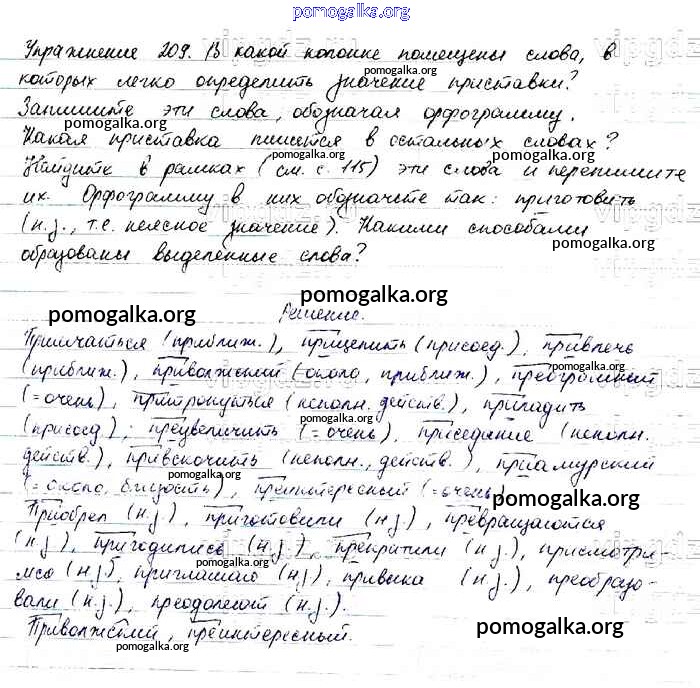 pomogalka.org
Упражнение 209. В какой колонке помещены слова, в
которых легко определить значение приставки?
Запишите эти слова, обозначая орфограмму.
Какая приставка пишется в остальных словах?
Найдите в рамках (см. с. 115) эти слова и перепишите
их. Орфограмму в них обозначьте так: приготовить
(н.з., т.е. неясное значение). Какими способами
образованы выделенные слова?
pomogalka.org
Решение.
Примчаться (приближ.), прицепить (присоед.), привлечь
(приближ.), приволжский (= около, приближ.), преогромный
(= очень), притронуться (неполн. действ.), приладить
(присоед), преувеличить (= очень), приседание (неполн.
действ.), привскочить (неполн., действ.), приамурский
(= около, близость), преинтересный (= очень)
Приобрел (н.з.), приготовили (н.з.), превращаются
(н.з.), пригодились (н.з.), прекратили (н.з.), присмотри-
мся (н.з), приглашаю (н.з), привыка (н.з.), преобразо-
вали (н.з.), преодолеют (н.з.).
Приволжский, преинтересный.
pomogalka.org